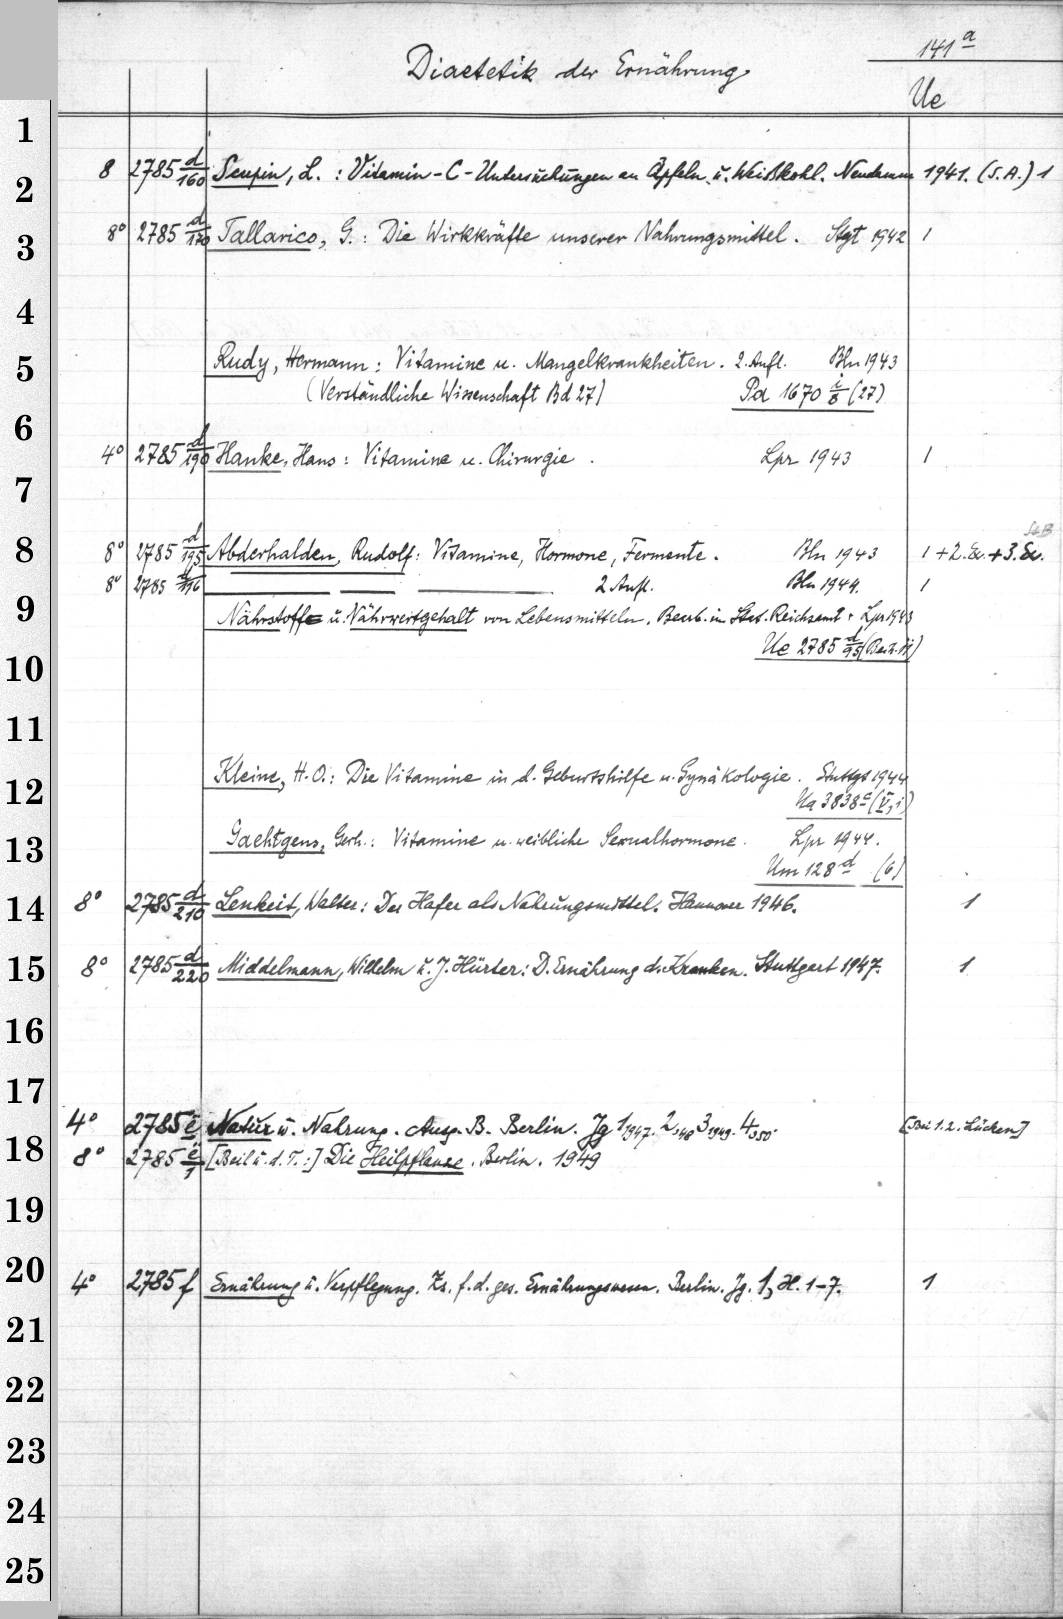 141a
Diaetetik der Ernährung
Ue
1
2
3
4
5
6
7
8
9
10
11
12
13
14
15
16
17
18
19
20
21
22
23
24
25
8 2785 d/160 Scupin, L. : Vitamin-C-Untersuchungen an Äpfeln u. Weißkohl. Neudamm 1941. (S.A.) 1
8° 2785 d/170 Tallarico, G. : Die Wirkkräfte unserer Nahrungsmittel. Stgt 1942 1
Rudy, Hermann : Vitamine u. Mangelkrankheiten. 2. Aufl. Bln 1943
(Verständliche Wissenschaft Bd 27) Pd 1670 i/8 (27)
4° 2785 d/190 Hanke, Hans : Vitamine u. Chirurgie. Lpz 1943 1
8° 2785 d/195 Abderhalden, Rudolf : Vitamine, Hormone, Fermente. Bln 1943 1 + 2. Ex. + 3. Ex.
8° 2785 d/196 2 Aufl. Bln 1944. 1
Nährstoff= u. Nährwertgehalt von Lebensmitteln. Bearb. im Stat. Reichsamt. Lpz 1943
Ue 2785 d/95
Kleine, H. O. : Die Vitamine in d. Geburtshilfe u. Gynäkologie. Stuttgt 1944
Ua 3838 c (V, i)
Gaehtgens, Gerh. : Vitamine u. weibliche Sexualhormone. Lpz 1944.
Um 128 d (6)
8° 2785 d/210 Lenkeit, Walter : Der Hafer als Nahrungsmittel. Hannover 1946. 1
8° 2785 d/220 Middelmann, Wilhelm u. J. Hürter : D. Ernährung d. Kranken. Stuttgart 1947. 1
4° 2785 e Natur u. Nahrung. Ausg. B. Berlin. Jg 1 1947. 2 1948 3 1949. 4 1950. [Bei 1.2. Lücken]
8° 2785 e/1 [Beil u. d. T. :] Die Heilpflanze. Berlin. 1949
4° 2785 f Ernährung u. Verpflegung. Zs. f. d. ges. Ernährungswesen. Berlin. Jg. 1, H. 1-7. 1